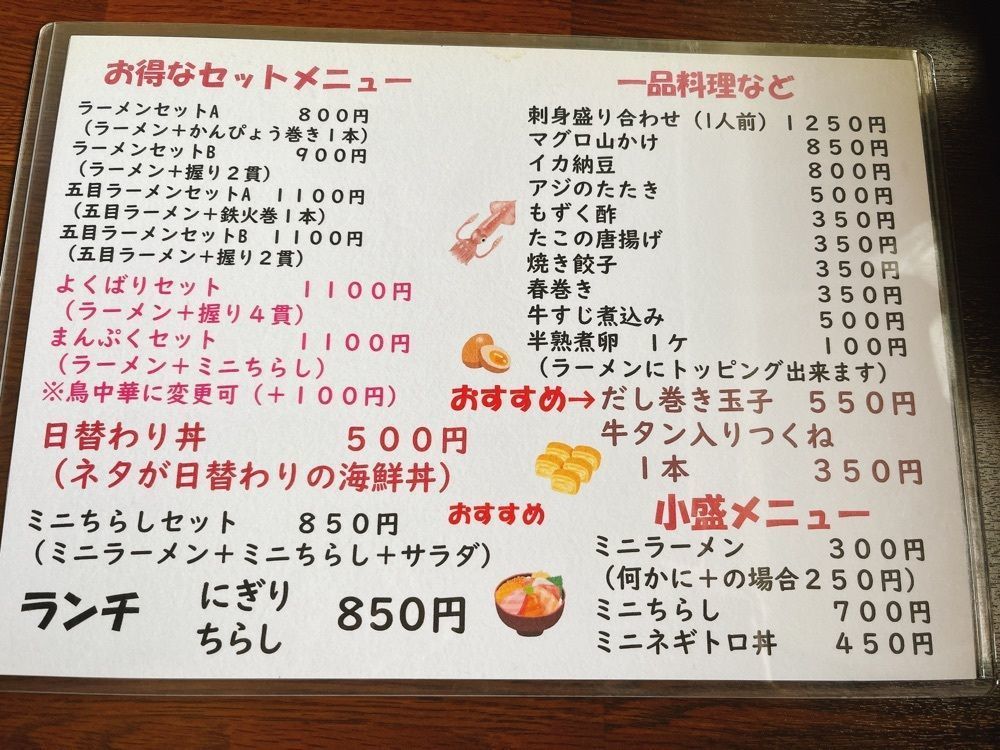 お得なセットメニュー
ラーメンセットA　８００円
（ラーメン＋かんぴょう巻き１本）
ラーメンセットB　９００円
（ラーメン＋握り２貫）
五目ラーメンセットA　１１００円
（五目ラーメン＋鉄火巻１本）
五目ラーメンセットB　１１００円
（五目ラーメン＋握り２貫）
よくばりセット　１１００円
（ラーメン＋握り４貫）
まんぷくセット　１１００円
（ラーメン＋ミニちらし）
※鳥中華に変更可（＋１００円）
日替わり丼　５００円
（ネタが日替わりの海鮮丼）
ミニちらしセット　８５０円　おすすめ
（ミニラーメン＋ミニちらし＋サラダ）
ランチ　にぎり　850円
ちらし
一品料理など
刺身盛り合わせ（1人前）１２５０円
マグロ山かけ　８５０円
イカ納豆　８００円
アジのたたき　５００円
もずく酢　３５０円
たこの唐揚げ　３５０円
焼き餃子　３５０円
春巻き　３５０円
牛すじ煮込み　５００円
半熟煮卵　１ケ　１００円
（ラーメンにトッピング出来ます）
おすすめ→だし巻き玉子　５５０円
牛タン入りつくね
１本　３５０円
小盛メニュー
ミニラーメン　３００円
（何かに＋の場合２５０円）
ミニちらし　７００円
ミニネギトロ丼　４５０円